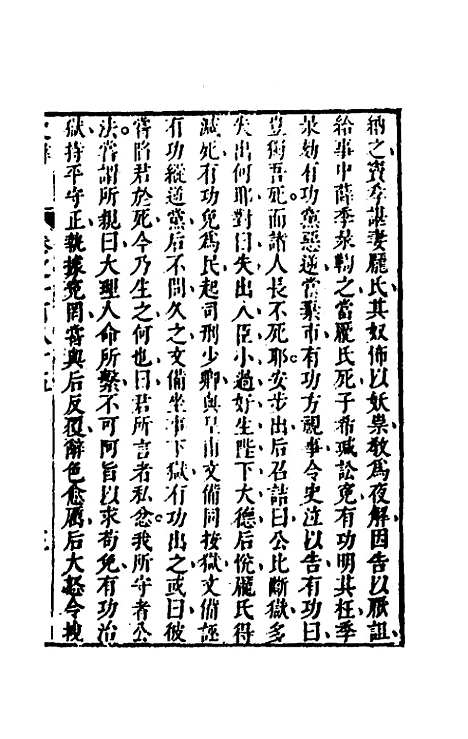 納之竇孝諶妻龐氏其奴怖以妖祟教爲夜解因告以厭詛
給事中薛季昶鞫之當龐氏死子希瑊訟寃有功明其枉季
昶劾有功黨惡逆當棄市有功方視事令史泣以告有功曰
豈獨吾死而諸人長不死耶安步出后召詰曰公比斷獄多
失出何耶對曰失出人臣小過好生陛下大德后悅龐氏得
減死有功免爲民起司刑少卿與皇甫文備同按獄文備誣
有功縱逆黨后不問久之文備坐事下獄有功出之或曰彼
嘗陷君於死今乃生之何也曰君所言者私忿我所守者公
法嘗謂所親曰大理人命所繫不可阿旨以求苟免有功治
獄持平守正執據寃罔嘗與后反復辭色愈厲后大怒令拽
卷之一百八十五
三